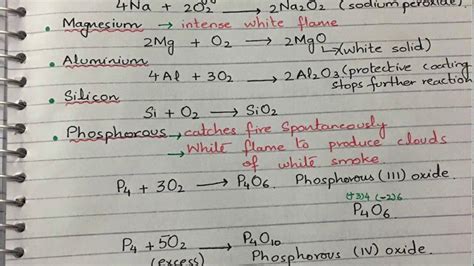 4Na + 2O₂ → 2Na₂O₂ (sodium peroxide)
• Magnesium → intense white flame
2Mg + O₂ → 2MgO
↳(white solid)
• Aluminium
4Al + 3O₂ → 2Al₂O₃ (protective coating
stops further reaction
• Silicon
Si + O₂ → SiO₂
• Phosphorous → catches fire spontaneously
→ White flame to produce clouds
of white smoke.
P₄ + 3O₂ → P₄O₆ Phosphorous (III) oxide.
(+3)4 (-2)6
P₄O₆
P₄ + 5O₂ → P₄O₁₀
(excess) Phosphorous (IV) oxide.